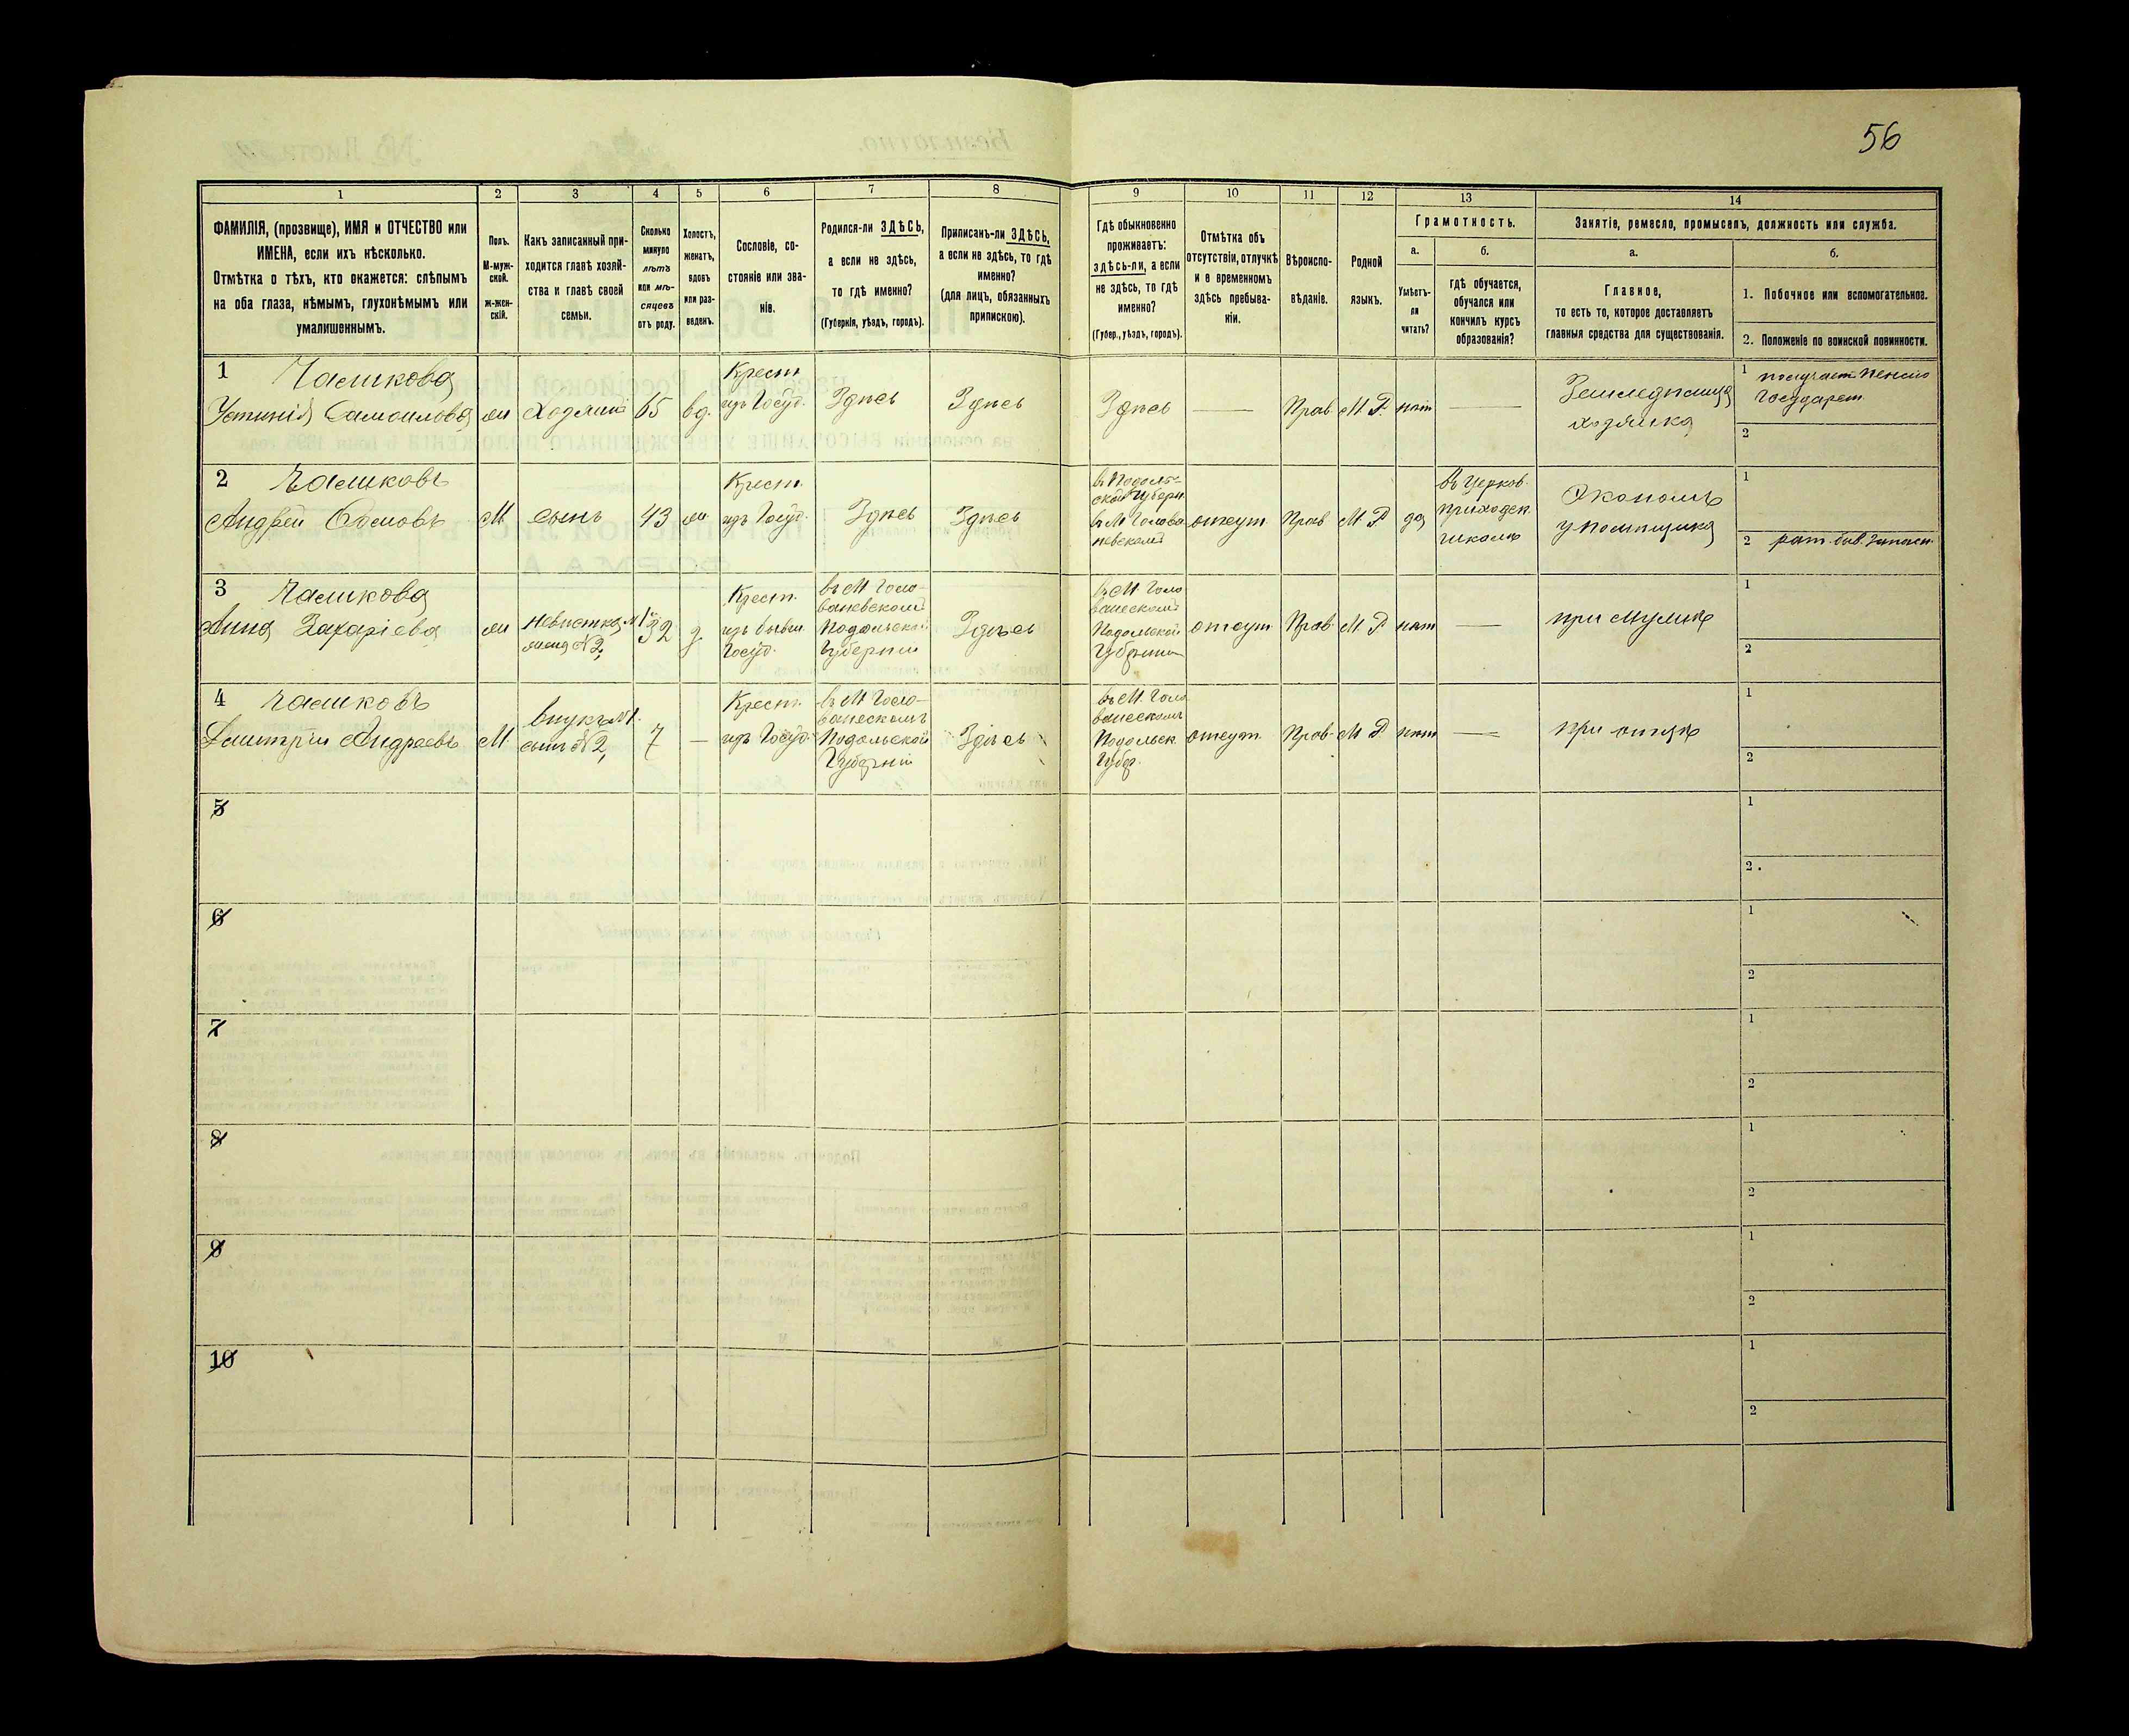 56
1
2
3
4
5
6
7
8
9
10
11
12
13
14
ФАМИЛІЯ, (прозвище), ИМЯ и ОТЧЕСТВО или
ИМЕНА, если ихъ нѣсколько.
Отмѣтка о тѣхъ, кто окажется: слѣпымъ
на оба глаза, нѣмымъ, глухонѣмымъ или
умалишеннымъ.
Полъ.
М-муж-
ской.
ж-жен-
скій.
Какъ записанный при-
ходится главѣ хозяй-
ства и главѣ своей
семьи.
Сколько
минуло
лѣтъ
или мѣ-
сяцевъ
отъ роду.
Холостъ,
женатъ,
вдовъ
или раз-
веденъ.
Сословіе, со-
стояніе или зва-
ніе.
Родился-ли ЗДѢСЬ,
а если не здѣсь,
то гдѣ именно?
(Губернія, уѣздъ, городъ).
Приписанъ-ли ЗДѢСЬ,
а если не здѣсь, то гдѣ
именно?
(для лицъ, обязанныхъ
припискою).
Гдѣ обыкновенно
проживаетъ:
здѣсь-ли, а если
не здѣсь, то гдѣ
именно?
(Губер., уѣздъ, городъ).
Отмѣтка объ
отсутствіи, отлучкѣ
и о временномъ
здѣсь пребыва-
ніи.
Вѣроиспо-
вѣданіе.
Родной
языкъ.
Грамотность.
а.
Умѣетъ-
ли
читать?
б.
гдѣ обучается,
обучался или
кончилъ курсъ
образованія?
Занятіе, ремесло, промыселъ, должность или служба.
а.
Главное,
то есть то, которое доставляетъ
главныя средства для существованія.
б.
1. Побочное или вспомогательное.
2. Положеніе по воинской повинности.
1 Чашкова
Устинія Самоилова
ж
65
вд.
Крест.
изъ Госуд.
Здѣсь
Здѣсь
Здѣсь
—
Прав.
М. Р.
нѣт
—
хозяйка
1 получает пенсію
Государст.
2
2 Чашковъ
Андрей
М
сынъ
43
ж
Крест.
изъ Госуд.
Здѣсь
Здѣсь
въ Подоль-
ской Губерн.
въ М. Голова
невском
отсут.
Прав
М. Р
да
въ Церков.
приходск.
школѣ
Экономъ
у помѣщика
1
2
3 Чашкова
Анна Захаріева
ж
невѣстка № 1
жена № 2,
32
з.
Крест.
изъ бывш.
Госуд.
въ М. Голо-
ваневском
Подольской
Губерніи
Здѣсь
въ М. Голо
ванеском
Подольской
Губерніи
отсут.
Прав.
М. Р
нѣт
—
при мужѣ
1
2
4 Чашковъ
Дмитрій Андреевъ
М
внукъ № 1.
сынъ № 2,
7
—
Крест.
изъ Госуд.
въ М. Голо-
ванескомъ
Подольской
Губерніи
Здѣсь
въ М. Голо
ванескомъ
Подольск.
Губер.
отсут.
Прав.
М Р
нѣт
—
при отцѣ
1
2
5
1
2
6
1
2
7
1
2
8
1
2
9
1
2
10
1
2